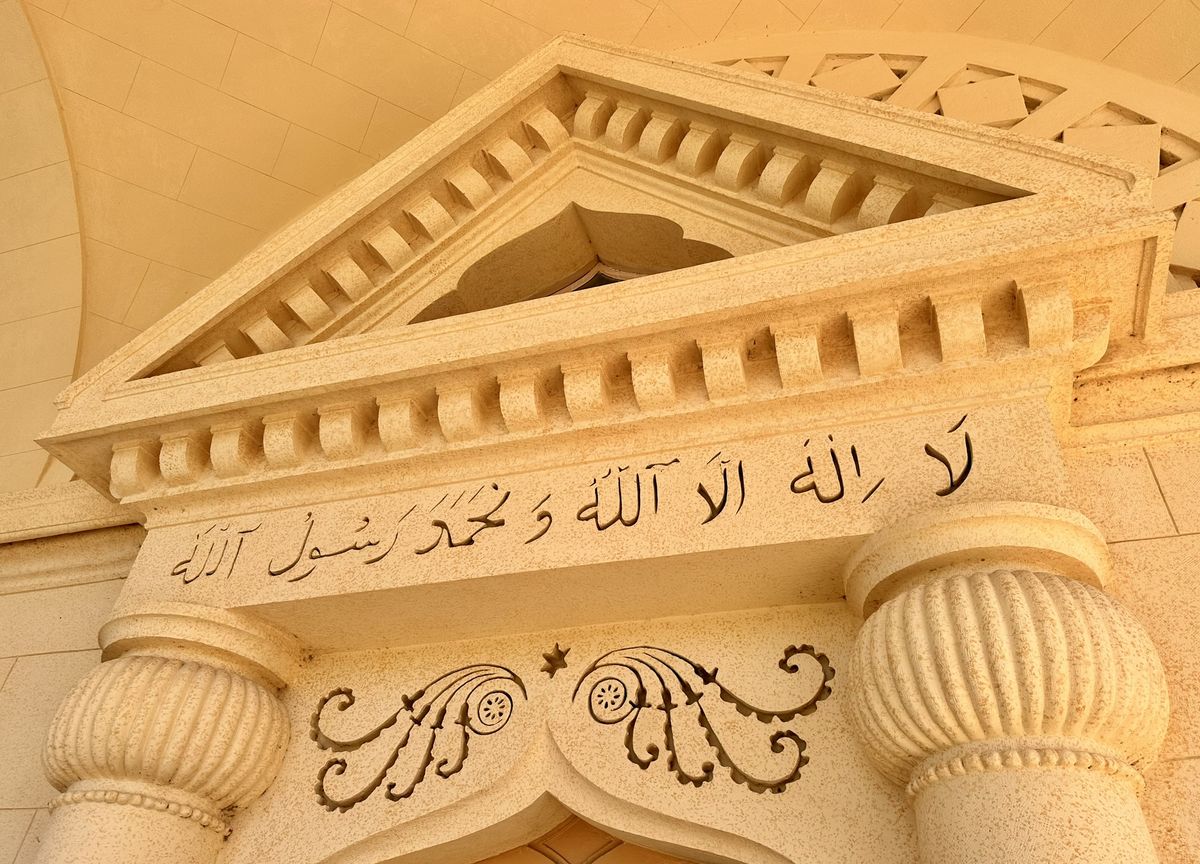 لا اِلٰه الّا آللّٰه و محَمَّد رَسُولُ آللّٰه